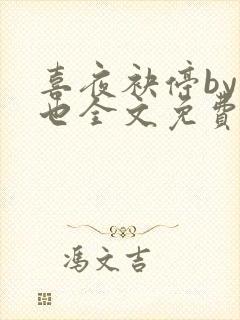 喜夜袂停by
也全文免費
冯文吉